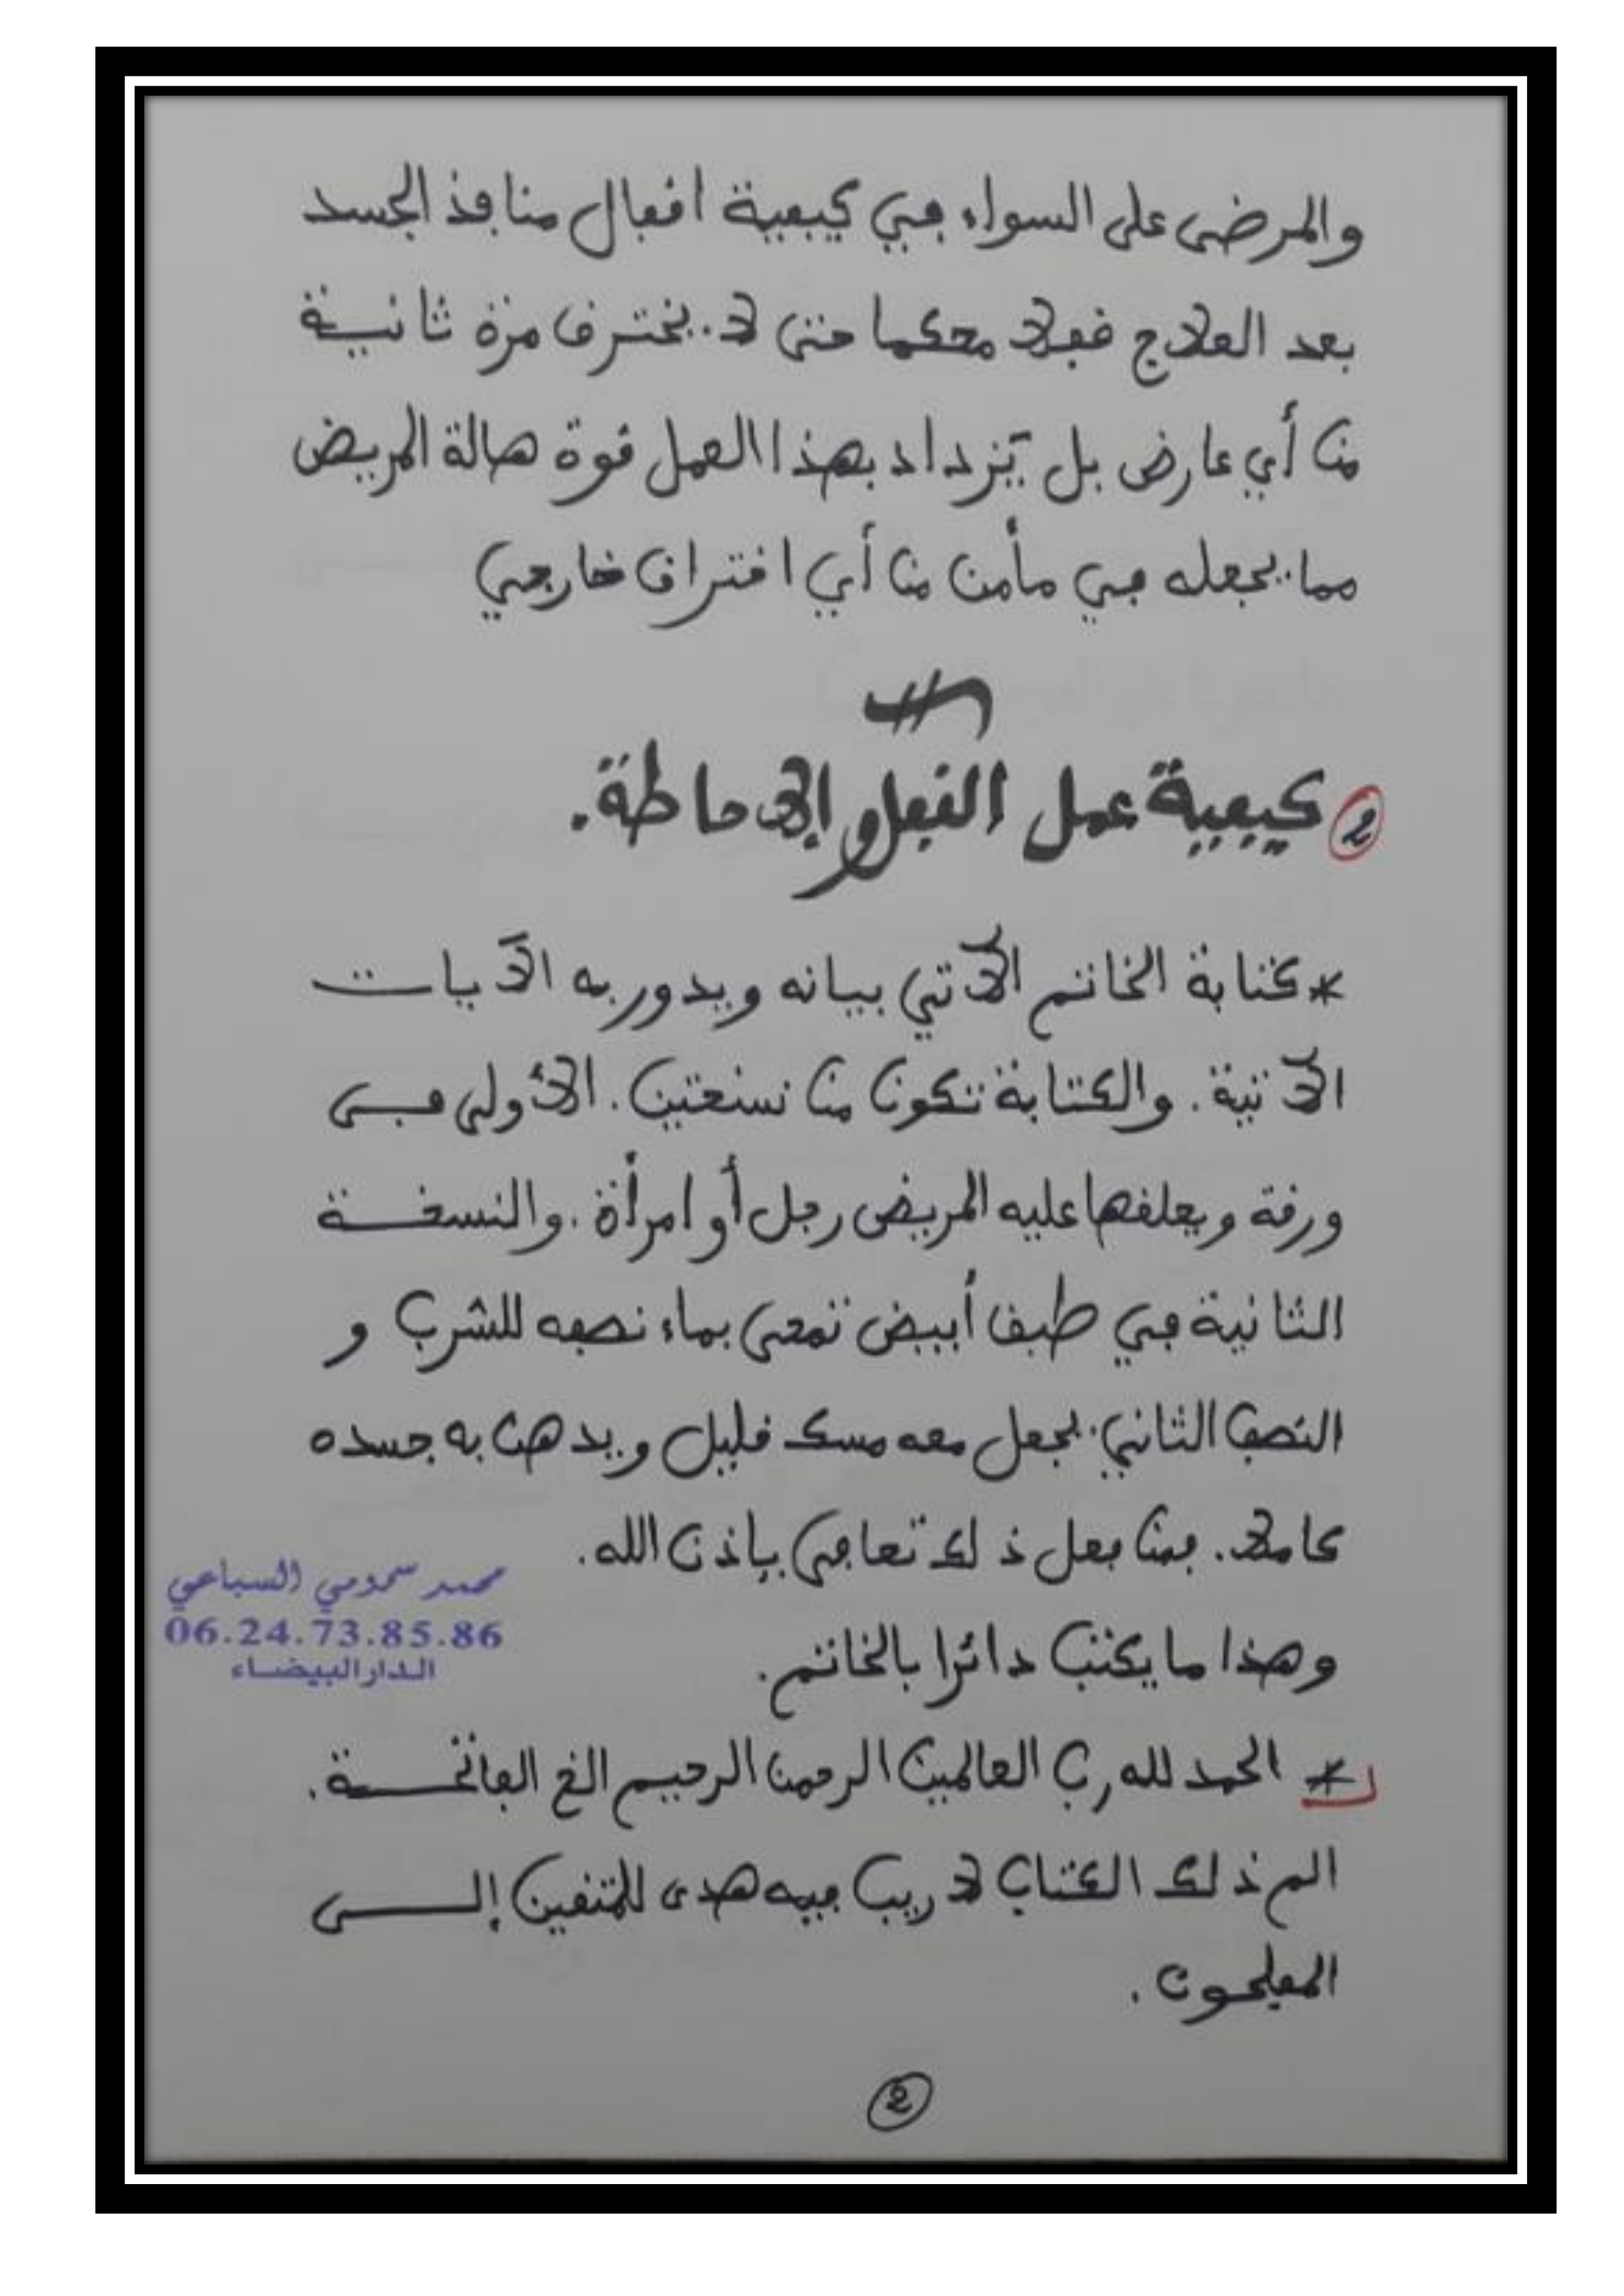 والمرضى على السواء في كيفية اقفال منافذ الجسد
بعد العلاج قفلا محكما حتى لا يخترق مرة ثانية
من أي عارض بل تزداد بهذا العمل قوة هالة المريض
مما يجعله في مأمن من أي اختراق خارجي
2 كيفية عمل القفل والإحاطة.
* كتابة الخاتم الآتي بيانه ويدور به الآيات
الآتية. والكتابة تكون من نسختين. الأولى في
ورقة ويعلقها عليه المريض رجل أو امرأة. والنسخة
الثانية في طبق أبيض تمحى بماء نصفه للشرب و
النصف الثاني يجعل معه مسك قليل ويدهن به جسده
كاملا. فمن فعل ذلك تعافى بإذن الله.
محمد سمومي السباعي
06.24.73.85.86
الدار البيضاء
وهذا ما يكتب دائرا بالخاتم.
* الحمد لله رب العالمين الرحمن الرحيم الخ الفاتحة.
الم ذلك الكتاب لا ريب فيه هدى للمتقين إلى
المفلحون.
2